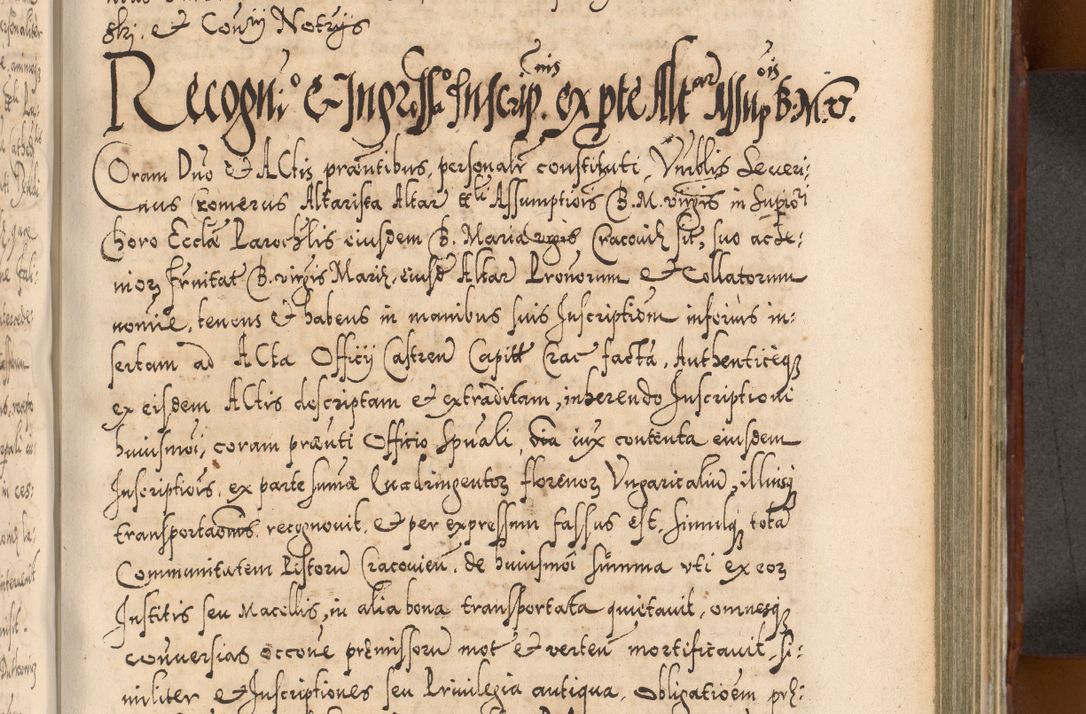 ski, et Coĩĩ Notrijs
Recogni.º & Ingrosso Inscrip.cnis ex pte Altar Assup.ois B. M. V.
Coram Dño & ACtis præntibus, personalr constituti, Vnrblis Severi:
nus Romerus Altarista Altar ttli Assumptiois B. M. virgis in supiori
Choro Eccla Parochlis eiusdem B. Maria vrgis Cracoviæ sit, suo ac Je-
nioꝝ frnitat B. virgis Mariæ, eiusd Altar Prouorum & Collatorum
nomie, tenens & habens in manibus suis Inscriptiom inforius in:
sertam ad ACta Officij Castren Capitł Crac facta, Authenticeqꝫ
ex eisdem ACtis descriptam & extraditam, inhærendo Inscriptioni
huiusmoi, coram prænti Officio Spuali, oia iux contenta eiusdem
Inscriptiois, ex parte sumæ Quadringentoꝝ florenoꝝ Vngaricaliū, illiusqꝫ
transportaõnis, recognovit, & per expressum fassus est, Simulqꝫ totā
Communitatem Pistorū Cracovien, de huiusmoi summa vti ex eoꝝ
Institis seu Macellis, in alia bona transportata quietavit, omnesqꝫ
conversias occõne præmissorū mot & verten mortificavit, Si:
militer & Inscriptiones seu Privilegia antiqua, Obligatioẽm præ: